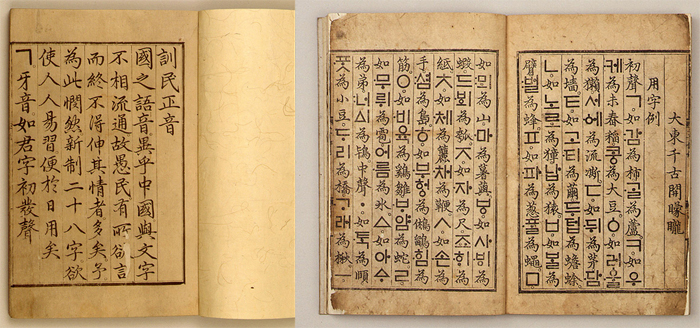 訓民正音
國之語音異乎中國與文字
不相流通故愚民有所欲言
而終不得伸其情者多矣予
為此憫然新制二十八字欲
使人人易習便於日用矣
ㄱ牙音如君字初發聲
大東千古開朦朧
用字例
初聲ㄱ如감為柿ᄀᆞᆯ為蘆ㅋ如우
케為未舂稻콩為大豆ㆁ如러울
為獺서에為流凘ㄷ如뒤為茅담
為墻ㅌ如고티為繭두텁為蟾蜍
ㄴ如노로為獐납為猿ㅂ如ᄇᆞᆯ為
臂벌為蜂ㅍ如파為葱ᄑᆞᆯ為蠅ㅁ
如뫼為山마為薯藇ㅸ如사ᄫᅵ為
蝦드ᄫᅴ為瓠ㅈ如자為尺죠ᄒᆡ為
紙ㅊ如체為籭채為鞭ㅅ如손為
手셤為島ㅎ如부헝為鵂鶹힘為
筋ㅇ如비육為鷄雛ᄇᆞ얌為蛇ㄹ
如무뤼為雹어름為氷ㅿ如아ᅀᆞ
為弟너ᅀᅵ為鴇中聲ㆍ如ᄐᆞᆨ為頤
ᄑᆞᆺ為小豆ᄃᆞ리為橋ᄀᆞ래為楸ㅡ